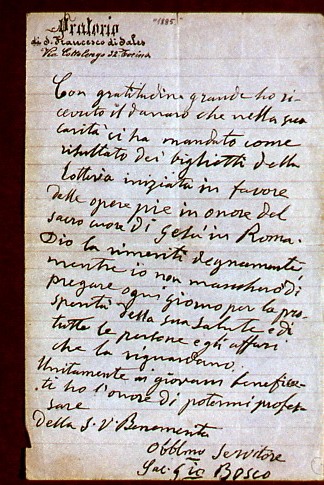 Oratorio
di S. Francesco di Sales
Via Cottolengo 32 Torino
"1885"
Con gratitudine grande ho ri-
cevuto il danaro che nella sua
carità ci ha mandato come
risultato dei biglietti della
Lotteria iniziata in favore
delle opere pie in onore del
sacro cuore di Gesù in Roma.
Dio la rimeriti degnamente,
mentre io non mancherò di
pregare ogni giorno per la pro-
sperità della sua salute e di
tutte le persone e gli affari
che la riguardano.
Unitamente ai giovani benefica-
ti ho l'onore di potermi profes-
sare
Della S. V Benemerita
Obblmo Servitore
Sac. Gio Bosco